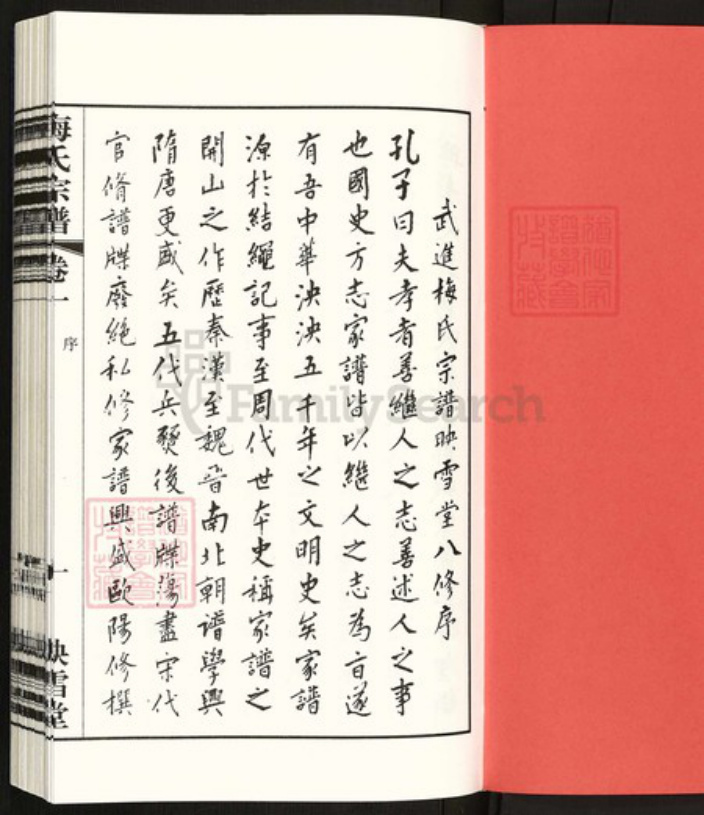 武進梅氏宗譜映雪堂八修序
孔子曰夫孝者善繼人之志善述人之事
也國史方志家譜皆以繼人之志為旨遂
有吾中華泱泱五千年之文明史矣家譜
源於結繩記事至周代世本史稱家譜之
開山之作歷秦漢至魏晉南北朝譜學興
隋唐更盛矣五代兵燹後譜牒蕩盡宋代
官脩譜牒廢絕私修家譜興盛歐陽修撰
梅氏宗譜 卷一
序
一
映雪堂
FamilySearch